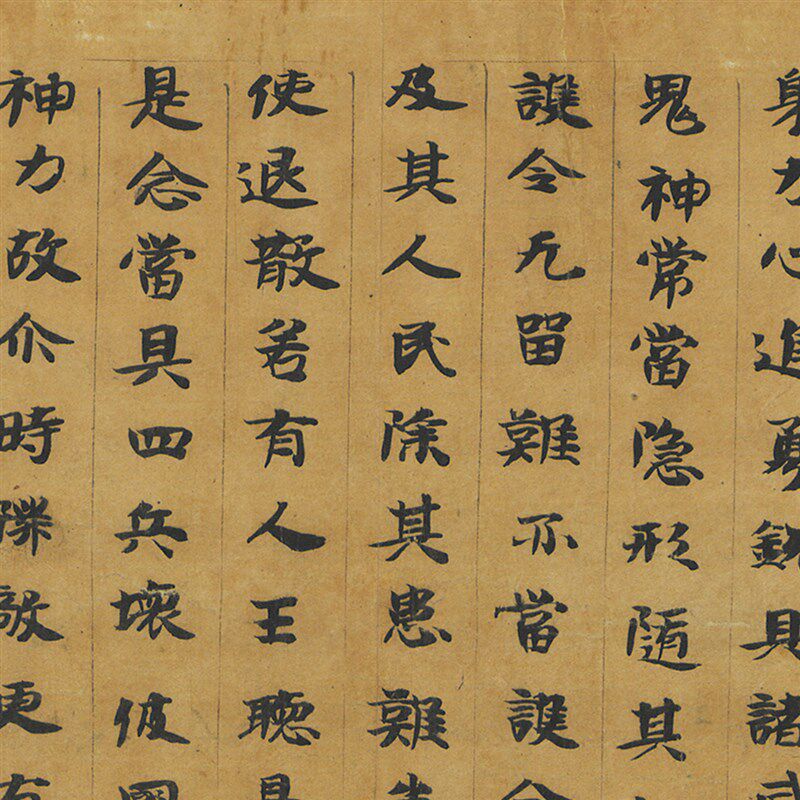 身力心進勇銳具諸
鬼神常當隱形隨其
護令无留難亦當護
及其人民除其患難
使退散若有人王聽是
是念當具四兵壞彼國
神力故尒時隣敵更有